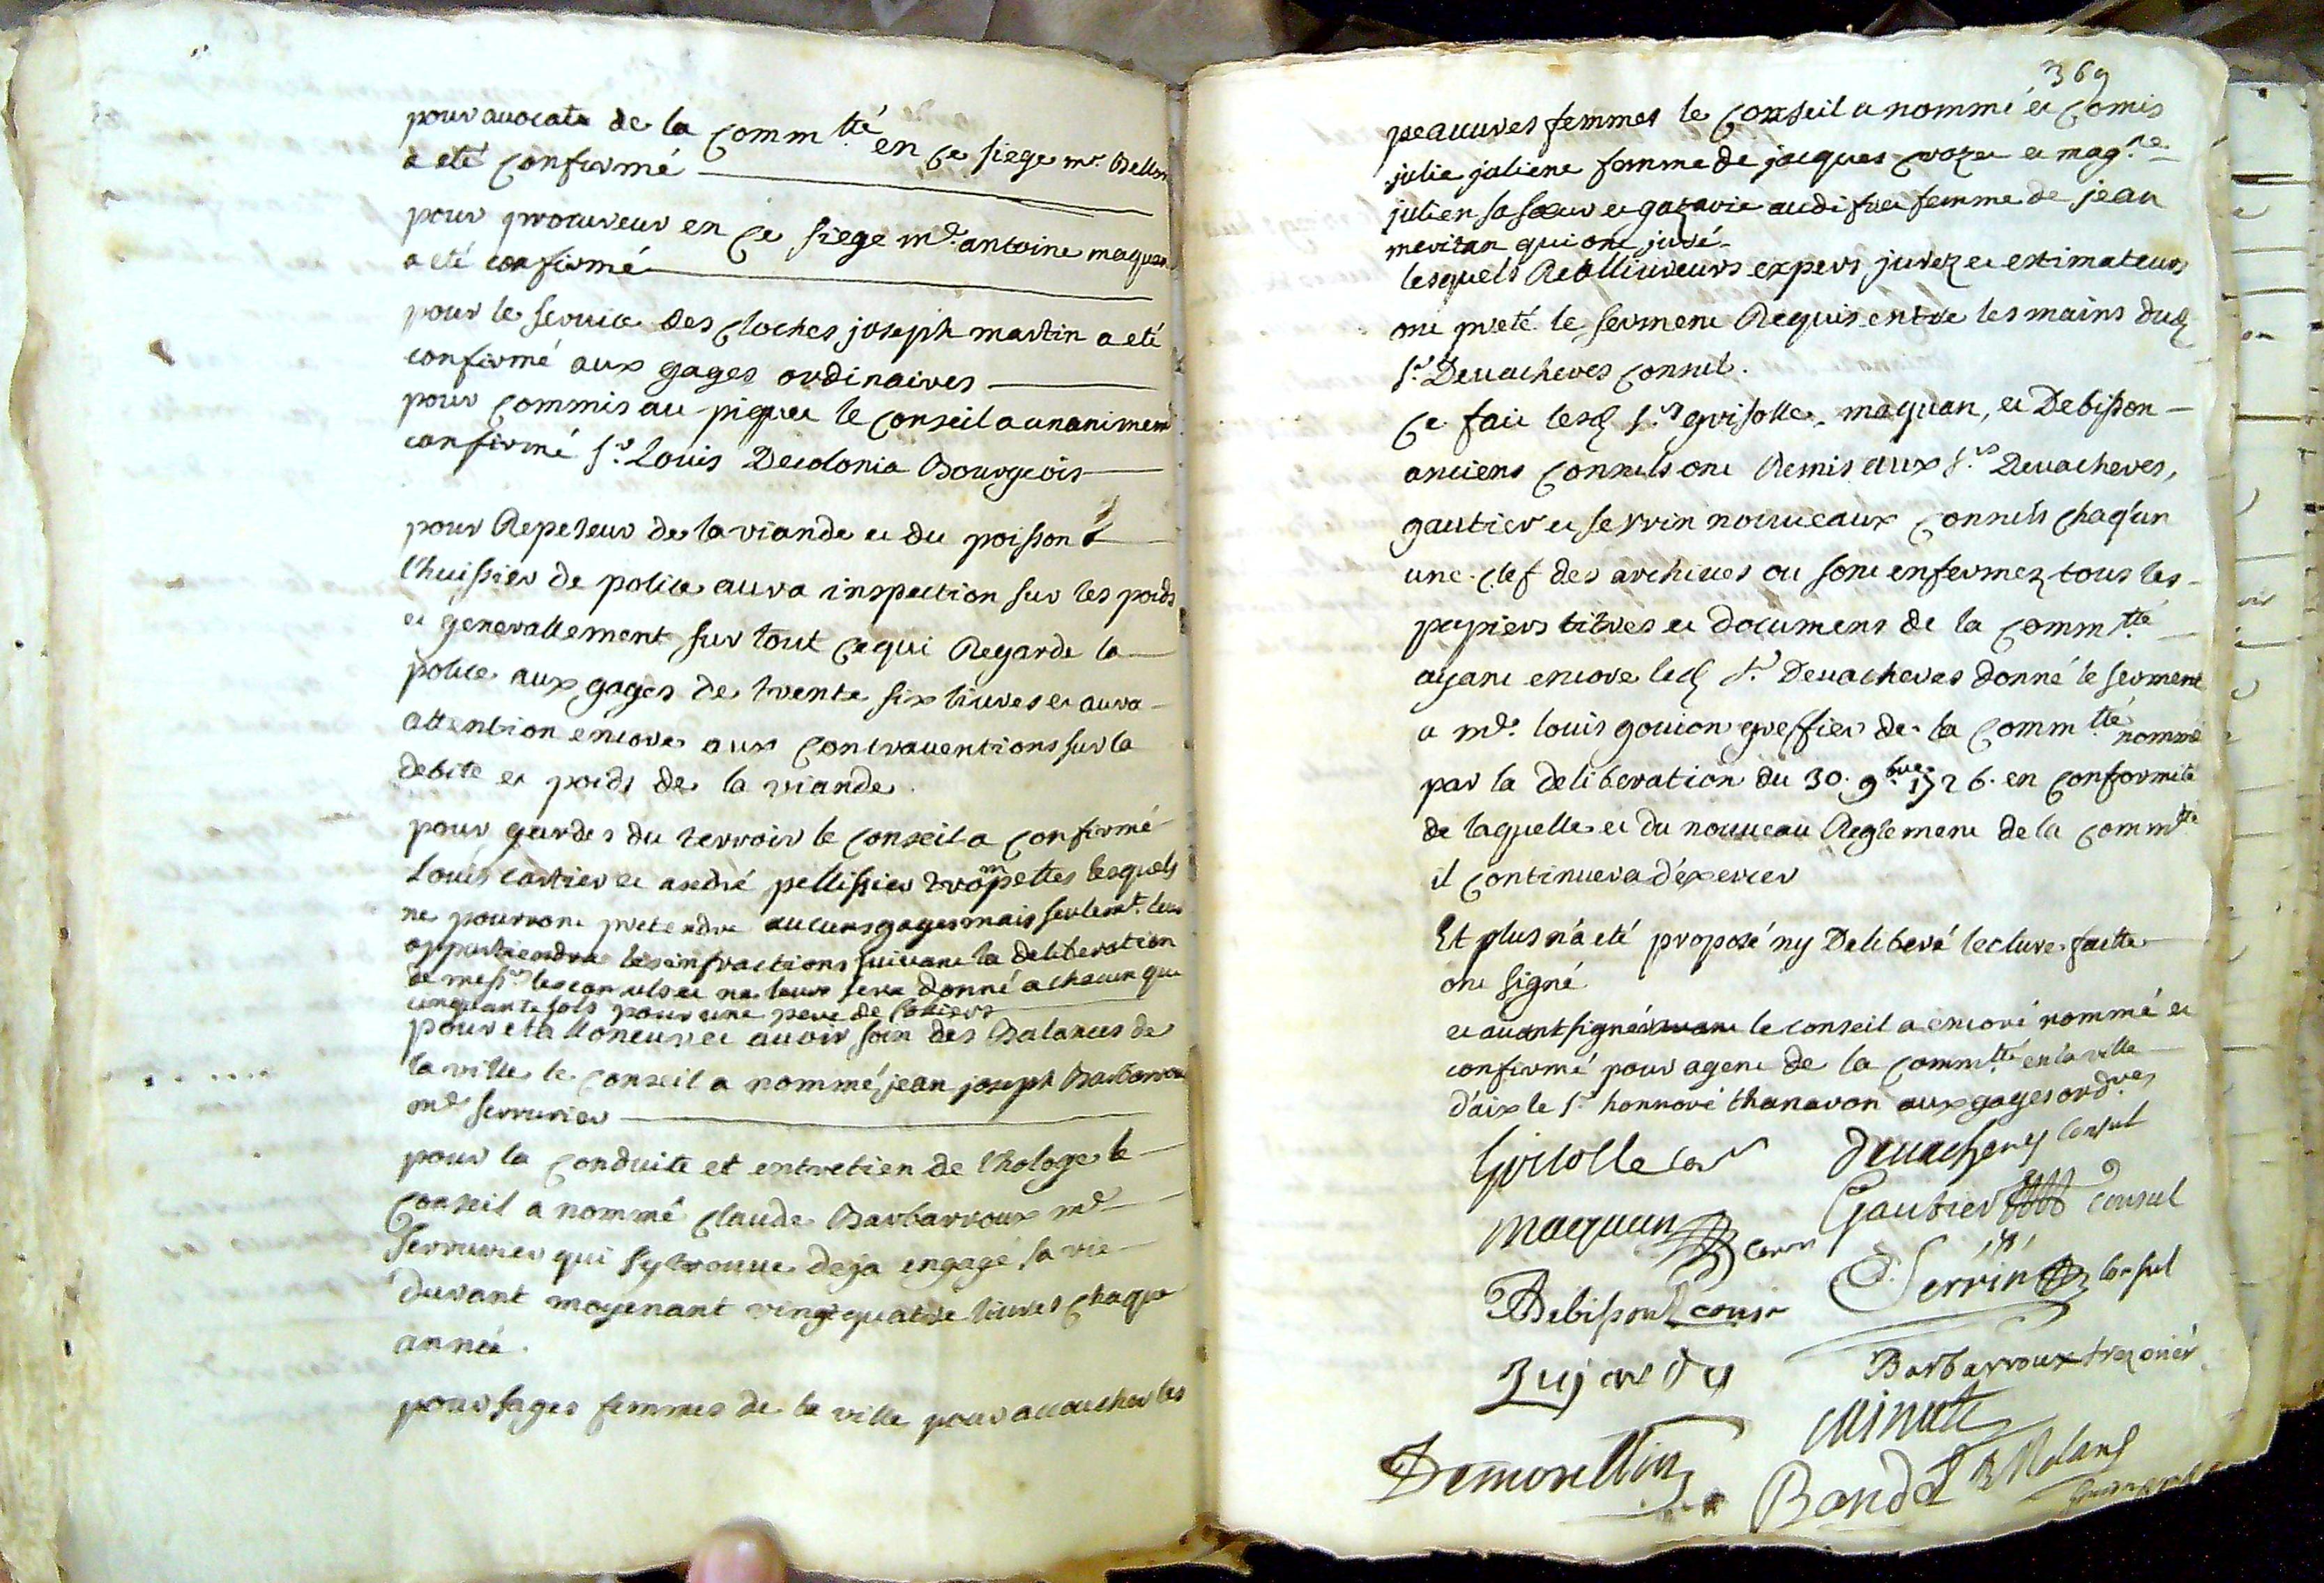 pour avocat de la Comm.tté en ce siege mr. Bellon
a eté confirmé
pour procureur en ce siege me. antoine maquan
a eté confirmé
pour le service des cloches joseph martin a eté
confirmé aux gages ordinaires
pour commis au piquet le conseil a unanimemt
confirmé sr. Louis Decolonia Bourgeois
pour Repeseur de la viande et du poisson
l'huissier de police aura inspection sur les poids
et generallement sur tout ce qui Regarde la
police aux gages de trente six livres et aura
attention encore aux contraventions sur la
debite et poids de la viande.
pour gardes du terroir le conseil a confirmé
Louis cartier et andré pellissier trompettes lesquels
ne pourront pretendre aucuns gages mais seulemt. leur
appartiendra les infractions suivant la deliberation
de messrs les consuls et ne leur sera donné a chacun que
cinquante sols pour une pere de soliers
pour etalloneur et avoir soin des Balances de
la ville le conseil a nommé jean joseph Barbarroux
me serrurier
pour la conduite et entretien de l'hologe le
conseil a nommé claude Barbarroux me
serrurier qui s'y trouve deja engagé sa vie
durant moyenant vingt quatre livres chaque
année.
pour sages femmes de la ville pour accoucher les
369
peauvres femmes le conseil a nommé et comis
julie juliene femme de jacques crozet et mag.ne
julien sa sœur et gazavie audifret femme de jean
meritan qui ont juré
lesquels Reälliureurs expers jurez et estimateurs
ont preté le serment Requis entre les mains dud
sr. Devacheres consul.
Ce fait lesd srs grisolle, maquan, et Debisson
anciens consuls ont Remis aux srs Devacheres,
gautier et serrin nouveaux consuls chaq'un
une clef des archives ou sont enfermez tous les
papiers titres et documens de la comm.tté
ayant encore led sr Devacheres donné le serment
a me. louis gouion greffier de la comm.tté nommé
par la deliberation du 30. 9bre. 1726. en conformité
de laquelle et du nouveau Reglement de la commtté
il continuera d'exercer
Et plus n'a eté proposé ny Deliberé lecture faitte
ont signé
et avant signé le conseil a encore nommé et
confirmé pour agent de la comm.tté en la ville
d'aix le sr honnoré thanaron aux gages ord.res
Grisolle con Devacheres consul
Maquan con Gautier consul
Debisson consr Serrin consul
Barbarroux trezorier
Demorellin